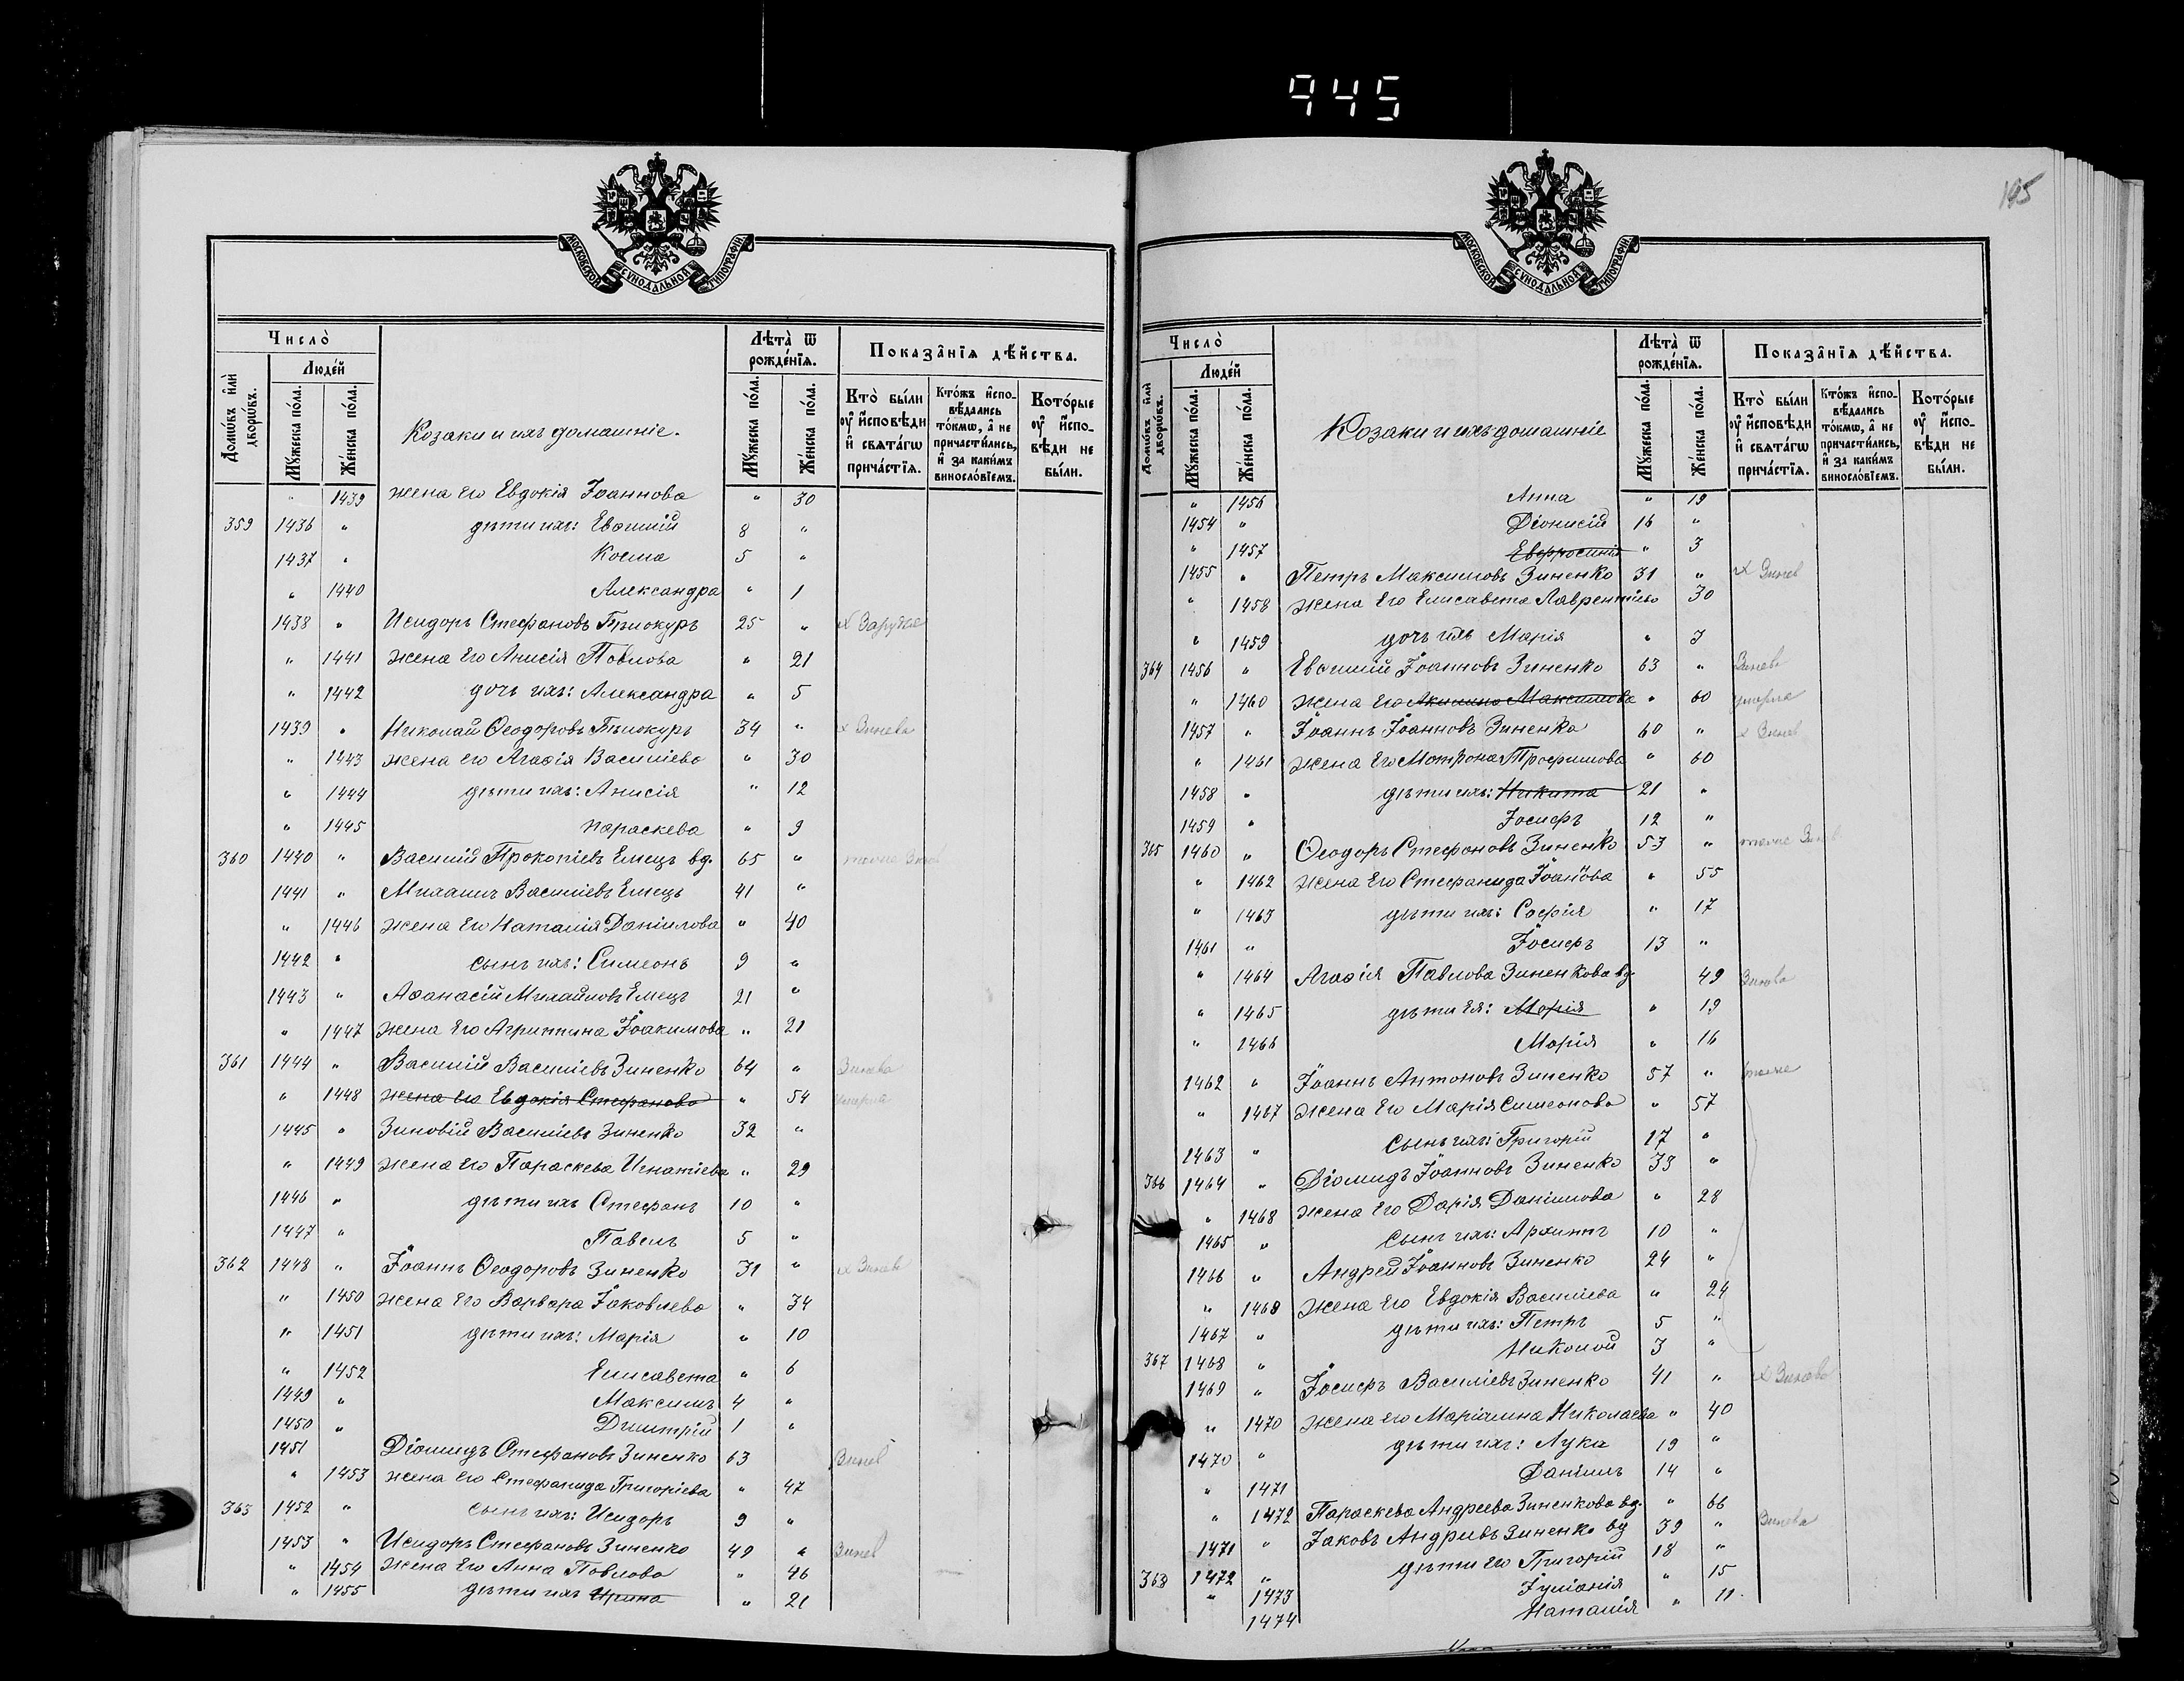 945
195
МОСКОВСКОЙ СУНОДАЛЬНОЙ ТИПОГРАФІИ
Число̀
Домѡ́въ и҆лѝ дворѡ́въ.
Люде́й
Мꙋ́жеска по́ла.
Же́нска по́ла.
Козаки и ихъ домашніе.
Лѣта̀ ѿ рожде́нїѧ.
Мꙋ́жеска по́ла.
Же́нска по́ла.
Показа̑нїѧ дѣ́йства.
Кто̀ бы́ли ᲂу҆ и҆́сповѣди и҆ свѧта́гѡ прича́стїѧ.
Кто́жъ и҆спо-вѣ́дались то́кмѡ, а҆ не причасти́лись, и҆ за каки́мъ виносло́вїемъ.
Кото́рые ᲂу҆ и҆́спо-вѣди не бы́ли.
" 1439 жена его Евдокія Іоаннова " 30
359 1436 " дѣти ихъ: Евѳимій 8 "
1437 " Косма 5 "
" 1440 Александра " 1
1438 " Исидоръ Стефановъ Тѣлокуръ 25 "
" 1441 жена его Анисія Павлова " 21
" 1442 дочь ихъ: Александра " 5
1439 " Николай Ѳеодоровъ Тѣлокуръ 34 " х Зинева
" 1443 жена его Агафія Василіева " 30
" 1444 дѣти ихъ: Анисія " 12
" 1445 Параскева " 9
360 1440 " Василій Прокопіевъ Емецъ вд. 65 "
1441 " Михаилъ Василіевъ Емецъ 41 "
" 1446 жена его Наталія Даніилова " 40
1442 " сынъ ихъ: Симеонъ 9 "
1443 " Аѳанасій Михайловъ Емецъ 21 "
" 1447 жена его Агриппина Іоакимова " 21
361 1444 " Василій Василіевъ Зиненко 64 " Зинева
" 1448 жена его Евдокія Стефанова " 54
1445 " Зиновій Василіевъ Зиненко 32 "
" 1449 жена его Параскева Игнатіева " 29
1446 " дѣти ихъ Стефанъ 10 "
1447 " Павелъ 5 "
362 1448 " Іоаннъ Ѳеодоровъ Зиненко 31 " х Зинев
" 1450 жена его Варвара Іаковлева " 34
" 1451 дѣти ихъ: Марія " 10
" 1452 Елисавета " 6
1449 " Максимъ 4 "
1450 " Димитрій 1 "
1451 Діомидъ Стефановъ Зиненко 63 Зинев
" 1453 жена его Стефанида Григоріева " 47
363 1452 " сынъ ихъ: Исидоръ 9 "
1453 " Исидоръ Стефановъ Зиненко 49 " Зинев
" 1454 жена его Анна Павлова " 46
" 1455 дѣти ихъ Ирина " 21
МОСКОВСКОЙ СУНОДАЛЬНОЙ ТИПОГРАФІИ
Число̀
Домѡ́въ и҆лѝ дворѡ́въ.
Люде́й
Мꙋ́жеска по́ла.
Же́нска по́ла.
Козаки и ихъ домашніе
Лѣта̀ ѿ рожде́нїѧ.
Мꙋ́жеска по́ла.
Же́нска по́ла.
Показа̑нїѧ дѣ́йства.
Кто̀ бы́ли ᲂу҆ и҆́сповѣди и҆ свѧта́гѡ прича́стїѧ.
Кто́жъ и҆спо-вѣ́дались то́кмѡ, а҆ не причасти́лись, и҆ за каки́мъ виносло́вїемъ.
Кото́рые ᲂу҆ и҆́спо-вѣди не бы́ли.
" 1456 Анна " 19
1454 " Діонисій 16 "
" 1457 Евфросинія " 3
1455 " Петръ Максимовъ Зиненко 31 " х Зинев
" 1458 жена его Елисавета Лаврентіева 30
" 1459 дочь ихъ Марія " 3
364 1456 " Евѳимій Іоанновъ Зиненко 63 " Зинев
" 1460 жена его Акилина Максимова " 60 умерла
1457 " Іоаннъ Іоанновъ Зиненко 60 " х Зинев
" 1461 жена его Матрона Трофимова " 60
1458 " дѣти ихъ: Никита 21 "
1459 " Іосифъ 12 "
365 1460 " Ѳеодоръ Стефановъ Зиненко 53 "
" 1462 жена его Стефанида Іоанова " 55
" 1463 дѣти ихъ: Софія " 17
1461 " Іосифъ 13 "
" 1464 Агафія Павлова Зиненкова вд. 49 Зинева
" 1465 дѣти ея: Марія " 19
" 1466 Марія " 16
1462 " Іоаннъ Антоновъ Зиненко 57 "
" 1467 жена его Марія Симеонова " 57
1463 " сынъ ихъ: Григорій 17 "
366 1464 " Діомидъ Іоанновъ Зиненко 33 "
" 1468 жена его Дарія Даніилова " 28
1465 " сынъ ихъ: Архиппъ 10 "
1466 " Андрей Іоанновъ Зиненко 24 "
" 1468 жена его Евдокія Василіева " 24
1467 " дѣти ихъ: Петръ 5 "
367 1468 " Николай 3 "
1469 " Іосифъ Василіевъ Зиненко 41 " х Зинева
" 1470 жена его Маріамна Николаева " 40
1470 " дѣти ихъ: Лука 19 "
" 1471 Даніилъ 14 "
" 1472 Параскева Андреева Зиненкова вд. " 66
1471 " Іаковъ Андріевъ Зиненко вд 39 " Зинева
368 1472 " дѣти его Григорій 18 "
" 1473 Іуліанія " 15
1474 Наталія " 11.